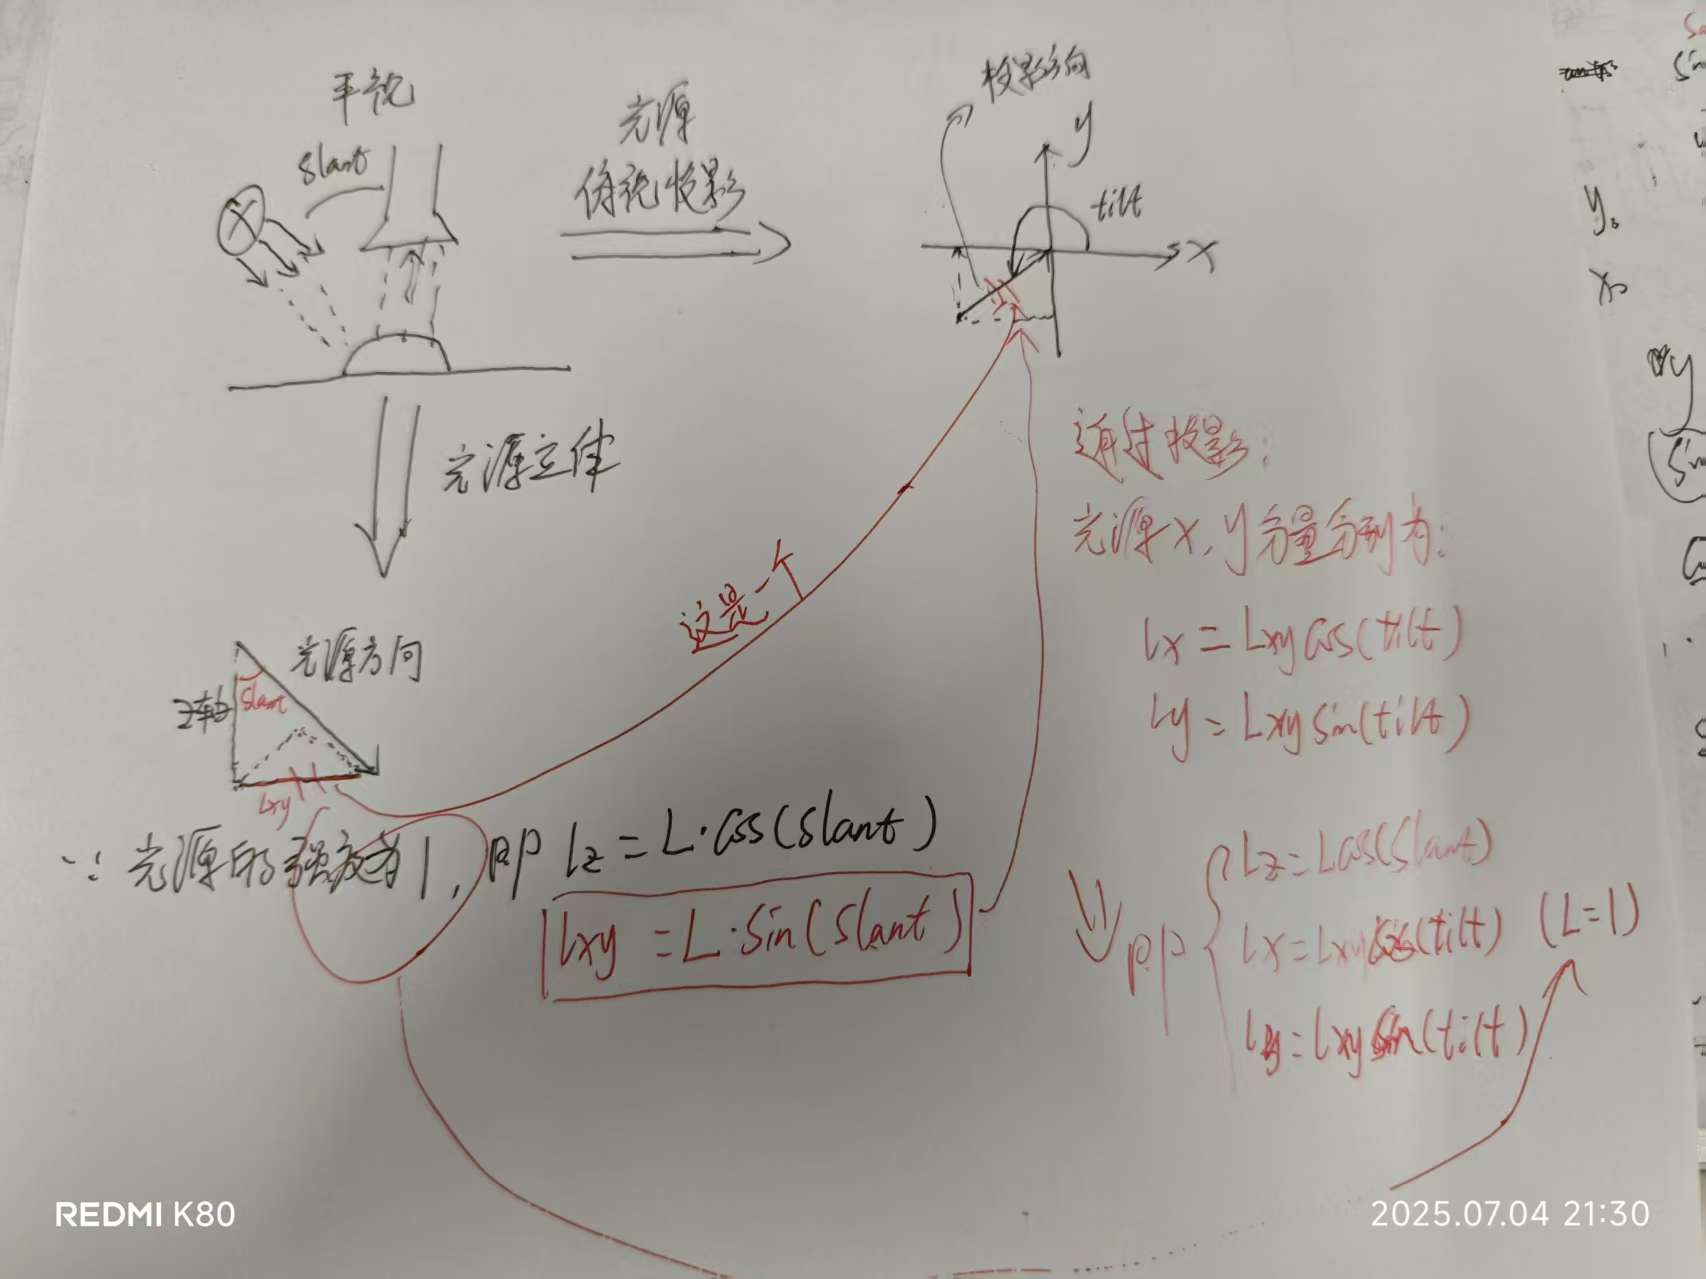 平视
slant
光源
俯视投影
投影方向
y
tilt
x
光源立体
透过投影:
光源x,y分量分别为:
lx = Lxy cos(tilt)
Ly = Lxy sin(tilt)
这是一个
光源方向
z轴
slant
Lxy
∵ 光源的强度为1, 即 lz = L·cos(slant)
lxy = L·sin(slant)
即
Lz = Lcos(slant)
lx = Lxycos(tilt) (L=1)
ly = lxy sin(tilt)
y。
x。
y
REDMI K80
2025.07.04 21:30